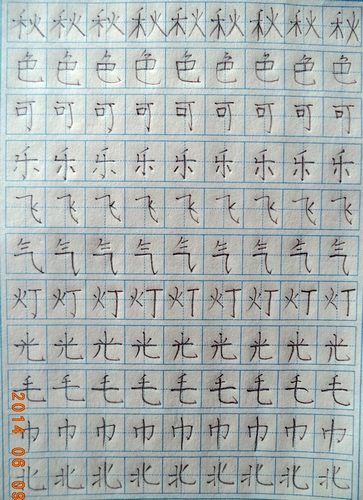 秋秋秋秋秋秋秋秋秋
色色色色色色色色色
可可可可可可可可可
乐乐乐乐乐乐乐乐乐
飞飞飞飞飞飞飞飞飞
气气气气气气气气气
灯灯灯灯灯灯灯灯灯
光光光光光光光光光
毛毛毛毛毛毛毛毛毛
巾巾巾巾巾巾巾巾巾
北北北北北北北北北
2014 06 09